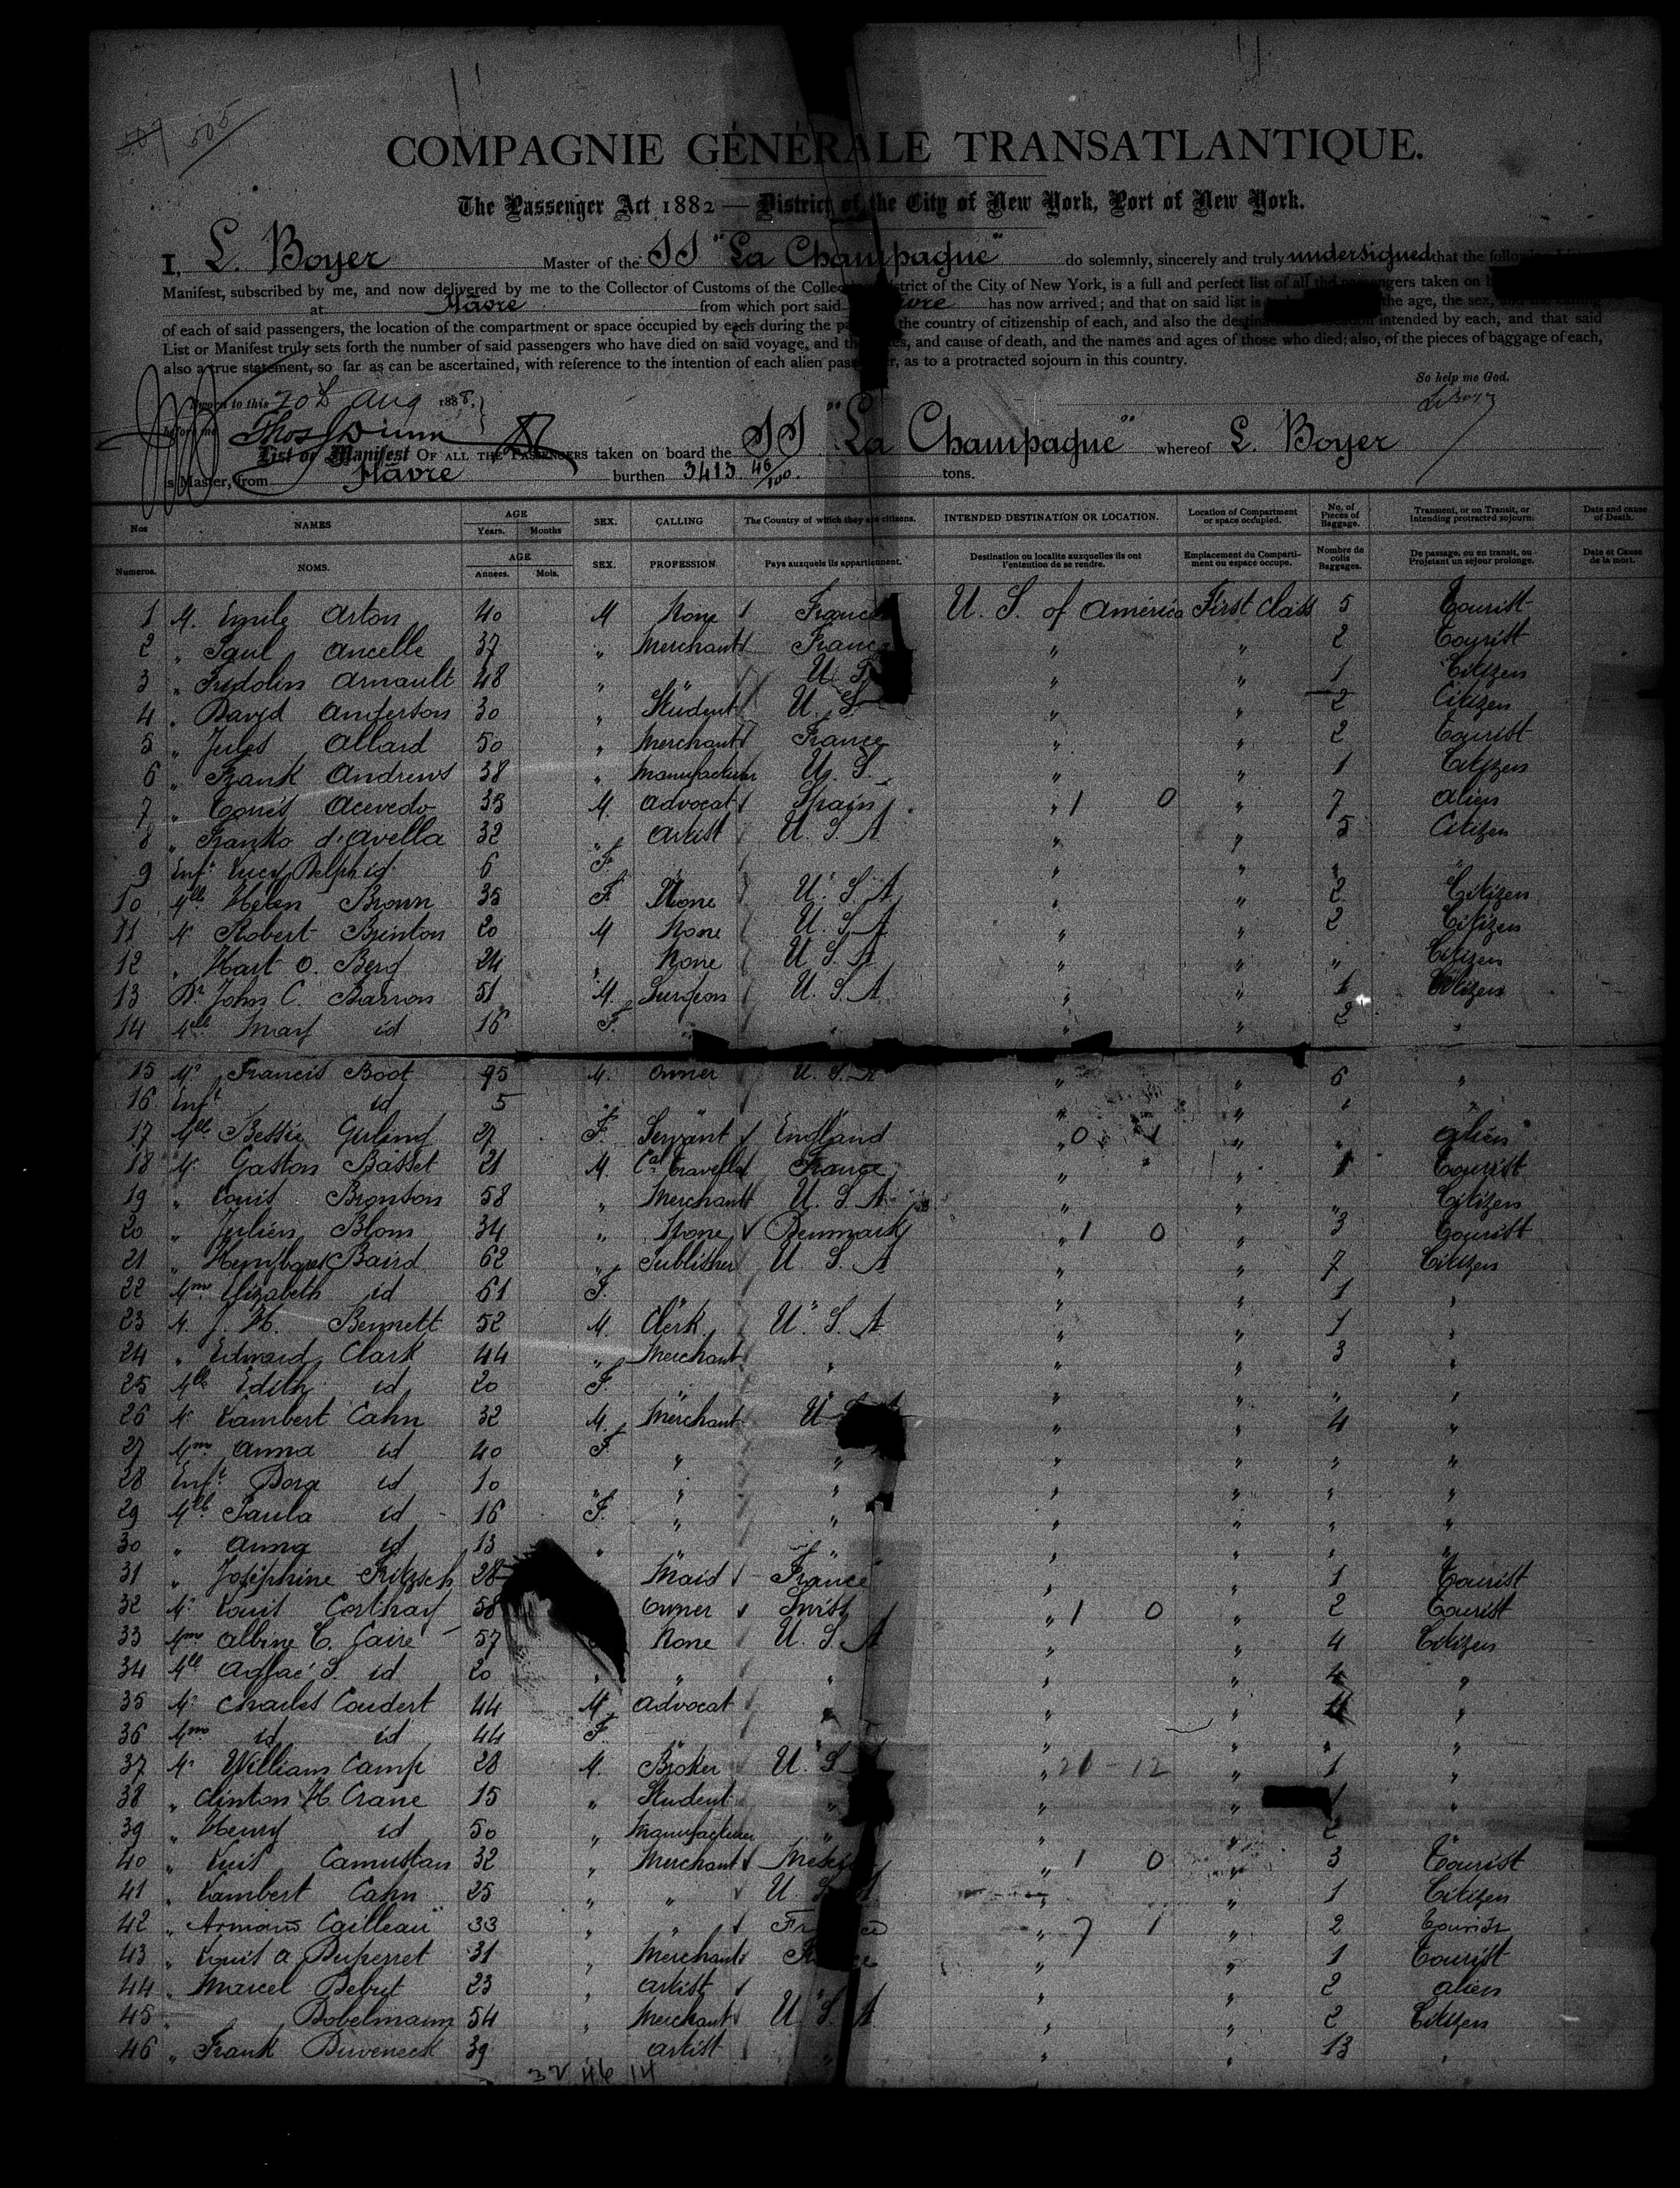 509 505
COMPAGNIE GÉNÉRALE TRANSATLANTIQUE.
The Passenger Act 1882 — District of the City of New York, Port of New York.
I, L. Boyer Master of the SS "La Champagne" do solemnly, sincerely and truly undersigned that the following
Manifest, subscribed by me, and now delivered by me to the Collector of Customs of the Collection District of the City of New York, is a full and perfect list of all the passengers taken on
at Hâvre from which port said has now arrived; and that on said list is the age, the sex, and the calling
of each of said passengers, the location of the compartment or space occupied by each during the the country of citizenship of each, and also the destination intended by each, and that said
List or Manifest truly sets forth the number of said passengers who have died on said voyage, and the and cause of death, and the names and ages of those who died; also, of the pieces of baggage of each,
also a true statement, so far as can be ascertained, with reference to the intention of each alien passenger, as to a protracted sojourn in this country.
So help me God.
Sworn to this 20th Aug 1888,
before me Thos Dunn
L Boyer
List or Manifest OF ALL THE PASSENGERS taken on board the SS "La Champagne" whereof L. Boyer
is Master, from Hâvre burthen 3413 46/100 tons.
Nos NAMES AGE Years. Months SEX. CALLING The Country of which they are citizens. INTENDED DESTINATION OR LOCATION. Location of Compartment or space occupied. No. of Pieces of Baggage. Transient, or on Transit, or intending protracted sojourn. Date and cause of Death.
Numeros. NOMS. AGE Années. Mois. SEX. PROFESSION Pays auxquels ils appartiennent. Destination ou localite auxquelles ils ont l'intention de se rendre. Emplacement du Compartiment ou espace occupe. Nombre de colis Baggages. De passage, ou en transit, ou Projetant un sejour prolonge. Date et Cause de la mort.
1 M. Emile Arton 40 M None France U. S. of América First Class 5 Tourist
2 " Paul Ancelle 37 " Merchant France " " 2 Tourist
3 " Fridolin Arnault 48 " " U S " " 1 Citizen
4 " David Anderson 30 " Student U. S " " 2 Citizen
5 " Jules Allard 50 " Merchant France " " 2 Tourist
6 " Frank Andrews 38 " Manufacturer U. S. " " 1 Citizen
7 " Louis Acevedo 33 M. Advocat Spain " 1 0 " 7 Alien
8 " Franko d'Avella 32 " Artist U. S. A " " 5 Citizen
9 Enft Lucy Delph id 6 F. " " " " " "
10 Mlle Helen Brown 35 F None U. S. A " " 2 Citizen
11 M. Robert Brinton 20 M None U. S. A " " 2 Citizen
12 " Hart O. Berg 24 " None U S. A " " " Citizen
13 Dr John C. Barron 51 M. Surgeon U. S. A. " " 1 Citizen
14 Mlle Mary id 16 F. " " " " 2 "
15 Mr Francis Boot M. Owner U. S. A " " 6 "
16 Enft id 5 " " " " "
17 Mlle Bessie Girling 27 F. Servant England " 0 1 " " Alien
18 M. Gaston Basset 21 M. Cal Traveller France " " 1 Tourist
19 " Louis Bronson 58 " Merchant U. S. A " " " Citizen
20 " Julien Blom 34 " None Denmark " 1 0 " 3 Tourist
21 " Baird 62 " Publisher U. S. A " " 7 Citizen
22 Mme Elizabeth id 61 F. " " " " 1 "
23 M. J. H. Bennett 52 M. Clerk U. S. A " " 1 "
24 " Edward Clark 44 " Merchant " " " 3 "
25 Mlle Edith id 20 F. " " " "
26 M. Lambert Cahn 32 M. Merchant U " " 4 "
27 Mme Anna id 40 F. " " " " " "
28 Enft Dora id 10 " " " " " " "
29 Mlle Paula id 16 F. " " " " " "
30 " Anna id 13 " " " " " " "
31 " Joséphine Fritzsch 28 Maid France " " 1 Tourist
32 M. Louis Corthay 58 Owner Swiss " 1 0 " 2 Tourist
33 Mme Albine C. Caire 57 None U. S. A " " 4 Citizen
34 Mlle Aglaé S. id 20 " " " " " 4 "
35 M. Charles Coudert 44 M. Advocat " " " 4 "
36 Mme id id 44 F. " " " " "
37 M. William Camp 28 M. Broker U. S. " 21 - 12 " 1 "
38 " Clinton H. Crane 15 " Student " " " "
39 " Henry id 50 " Manufacturer " " " 2 "
40 " Luis 32 " Merchant " 1 0 " 3 Tourist
41 " Lambert Cahn 25 " " U. A " " 1 Citizen
42 " Armand Cailleau 33 " " France " 7 1 " 2 Tourist
43 " Louis A Duperret 31 " Merchant " " 1 Tourist
44 " Marcel Debut 23 " Artist " " 2 Alien
45 " Dobelmann 54 " Merchant U. S. A " " 2 Citizen
46 " Frank Duveneck 39 Artist " " " 13 "
32 46 14